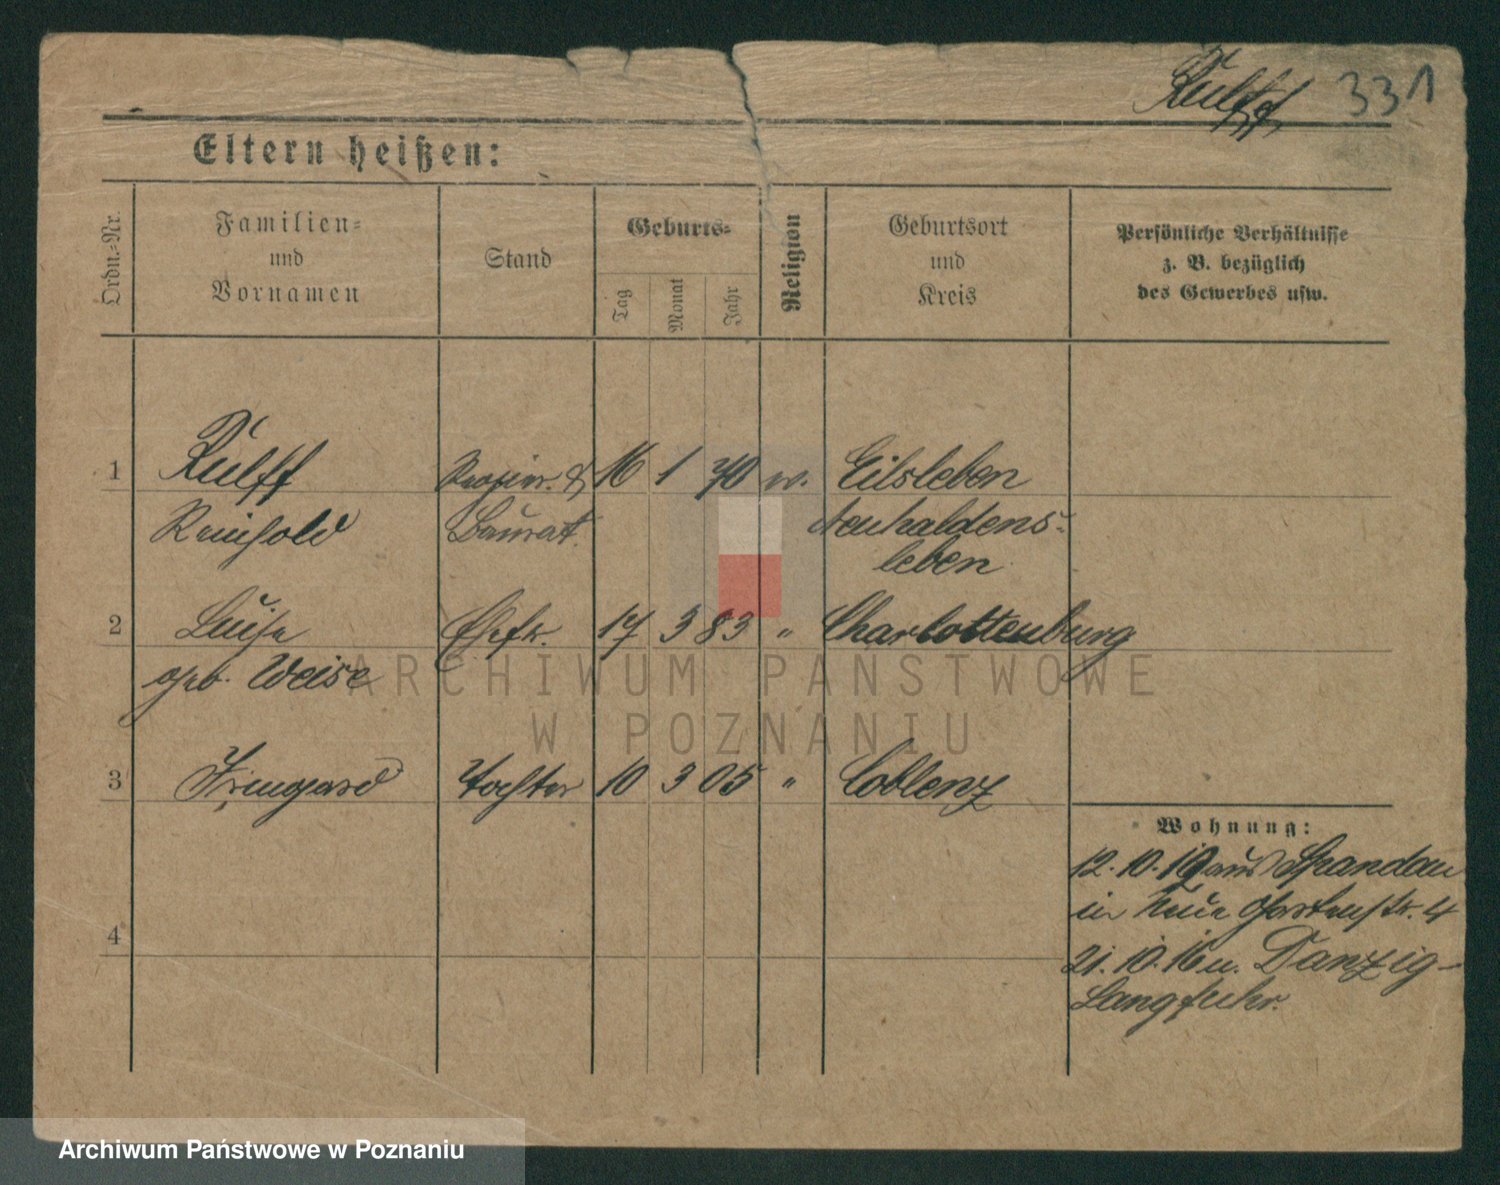 Rülff 331
Eltern heißen:
Ordn.-Nr.
Familien-
und
Vornamen
Stand
Geburts-
Tag
Monat
Jahr
Religion
Geburtsort
und
Kreis
Persönliche Verhältnisse
z. B. bezüglich
des Gewerbes usw.
1 Rülff 16 1 70 ev. Eilsleben
Reinhold Baurat. Neuhaldens-
leben
2 Luise Ehefr. 17 3 83 " Charlottenburg
geb. Weise
3 Irmgard Tochter 10 3 05 " Coblenz
4
Wohnung:
12. 10. 10 aus Spandau
in Neue Gartenstr. 4
21. 10. 16 n. Danzig-
Langfuhr.
ARCHIWUM PAŃSTWOWE
W POZNANIU
Archiwum Państwowe w Poznaniu